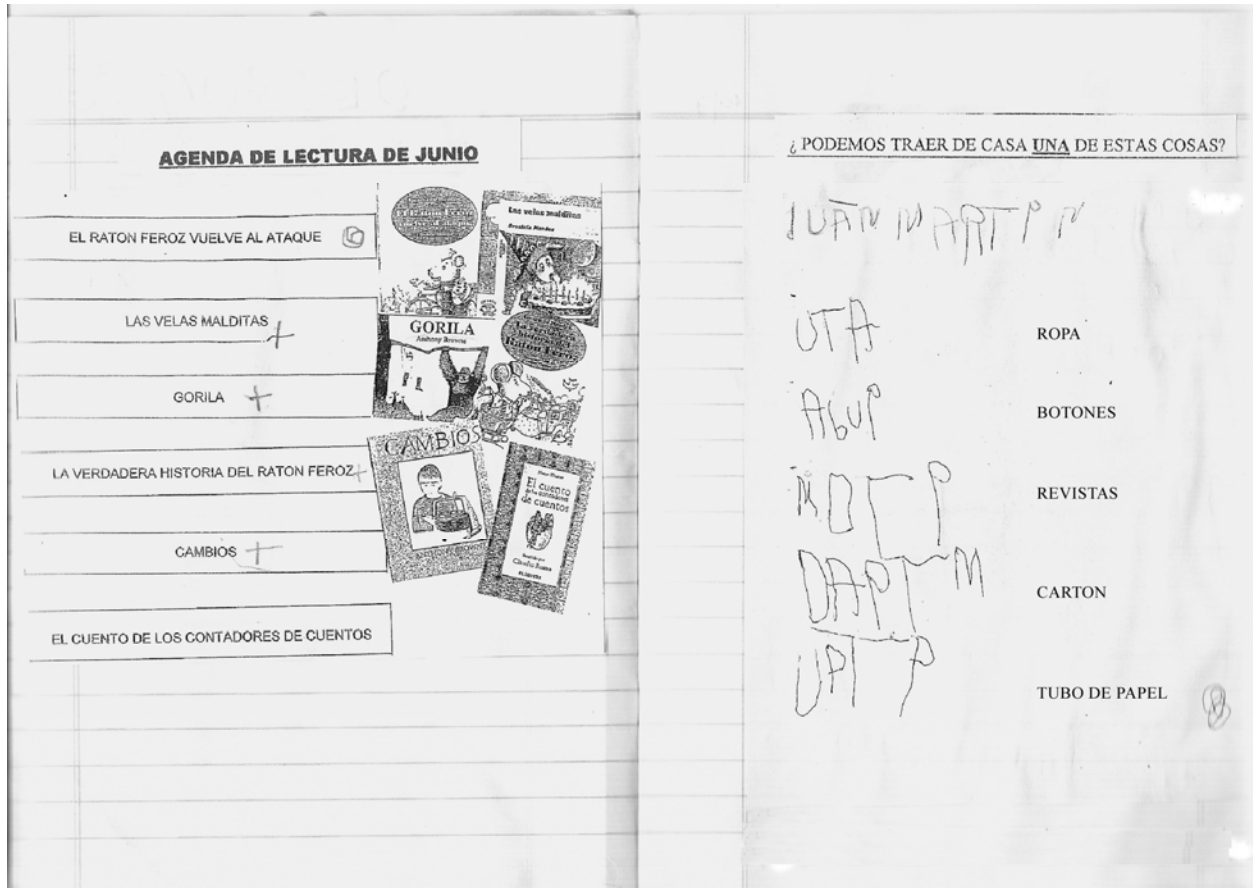 AGENDA DE LECTURA DE JUNIO
EL RATON FEROZ VUELVE AL ATAQUE
LAS VELAS MALDITAS
GORILA
LA VERDADERA HISTORIA DEL RATON FEROZ
CAMBIOS
EL CUENTO DE LOS CONTADORES DE CUENTOS
Las velas malditas
GORILA
Anthony Browne
Ratón Feroz
CAMBIOS
El cuento
de los contadores
de cuentos
¿ PODEMOS TRAER DE CASA UNA DE ESTAS COSAS?
JUAN MARTIN
UTA
ROPA
BOTONES
REVISTAS
CARTON
TUBO DE PAPEL